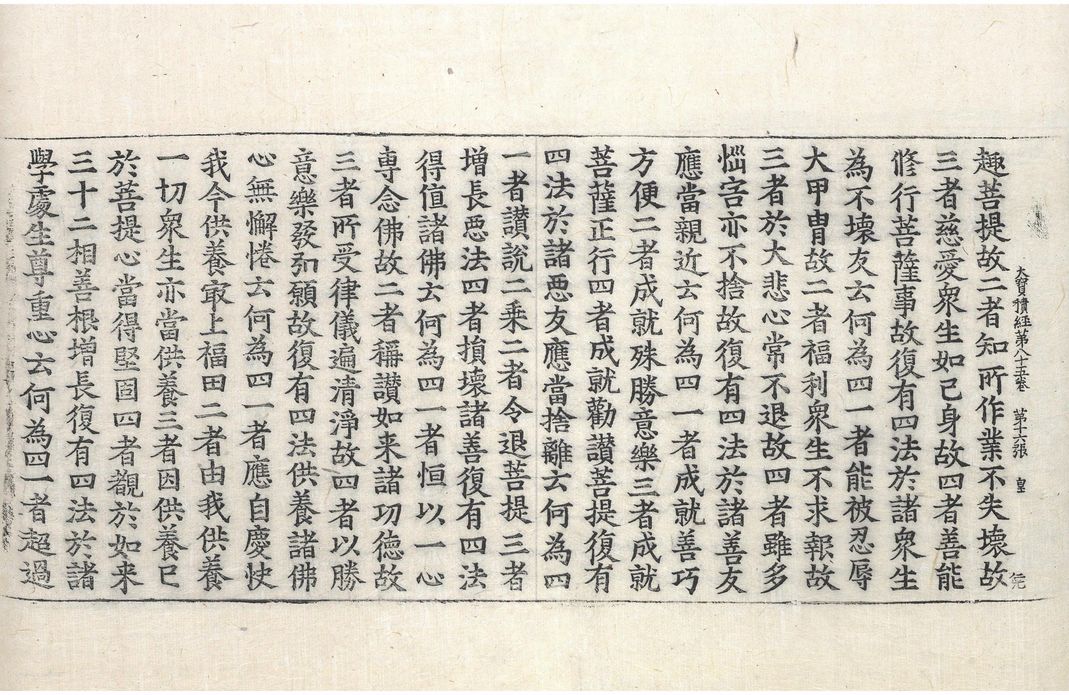 大寶積經第八十五卷 第十六張 皇
趣菩提故二者知所作業不失壞故
三者慈愛衆生如己身故四者善能
修行菩薩事故復有四法於諸衆生
為不壞友云何為四一者能被忍辱
大甲冑故二者福利衆生不求報故
三者於大悲心常不退故四者雖多
惱害亦不捨故復有四法於諸善友
應當親近云何為四一者成就善巧
方便二者成就殊勝意樂三者成就
菩薩正行四者成就勸讃菩提復有
四法於諸惡友應當捨離云何為四
一者讃說二乗二者令退菩提三者
増長惡法四者損壞諸善復有四法
得值諸佛云何為四一者恒以一心
専念佛故二者稱讃如来諸功德故
三者所受律儀遍清淨故四者以勝
意樂發弘願故復有四法供養諸佛
心無懈惓云何為四一者應自慶快
我今供養㝡上福田二者由我供養
一切衆生亦當供養三者因供養已
於菩提心當得堅固四者覩於如来
三十二相善根增長復有四法於諸
學處生尊重心云何為四一者超過